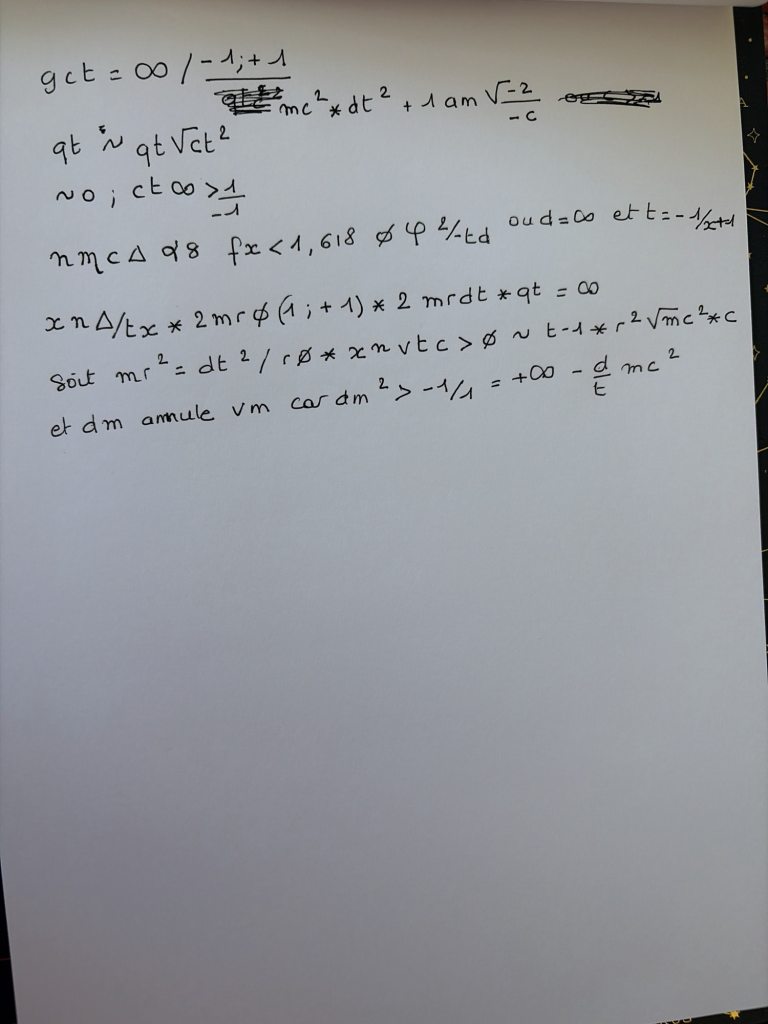 gct = ∞ / -1;+1
mc² * dt² + 1 am √-2/-c
qt ~ qt √ct²
~0 ; ct ∞ > 1/-1
nmc Δ α8 fx < 1,618 ø φ 2/-td ou d=∞ et t=-1/x+1
xnΔ/tx * 2mrø(1;+1) * 2mrdt * qt = ∞
Soit mr² = dt²/rø * xnvtc > ø ~ t-1 * r²√mc² * c
et dm annule vm car dm² > -1/1 = +∞ - d/t mc²